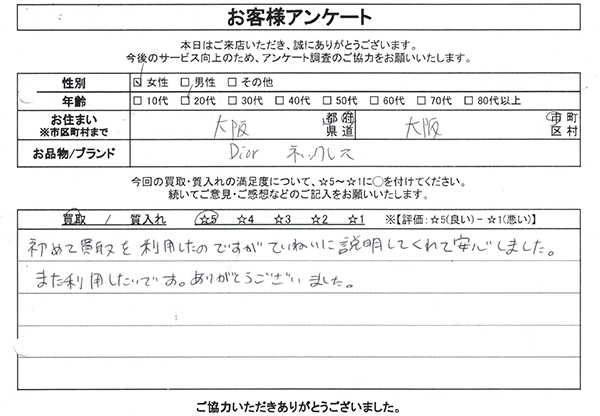 お客様アンケート
本日はご来店いただき、誠にありがとうございます。
今後のサービス向上のため、アンケート調査のご協力をお願いいたします。
性別 ☑ 女性 □ 男性 □ その他
年齢 □ 10代 ☑ 20代 □ 30代 □ 40代 □ 50代 □ 60代 □ 70代 □ 80代以上
お住まい ※市区町村まで 大阪 都府県道 大阪 市町区村
お品物/ブランド Dior ネックレス
今回の買取・質入れの満足度について、☆5～☆1に○を付けてください。
続いてご意見・ご感想などのご記入をお願いいたします。
買取 / 質入れ ☆5 ☆4 ☆3 ☆2 ☆1 ※【評価:☆5(良い)－☆1(悪い)】
初めて買取を利用したのですがていねいに説明してくれて安心しました。
また利用したいです。ありがとうございました。
ご協力いただきありがとうございました。